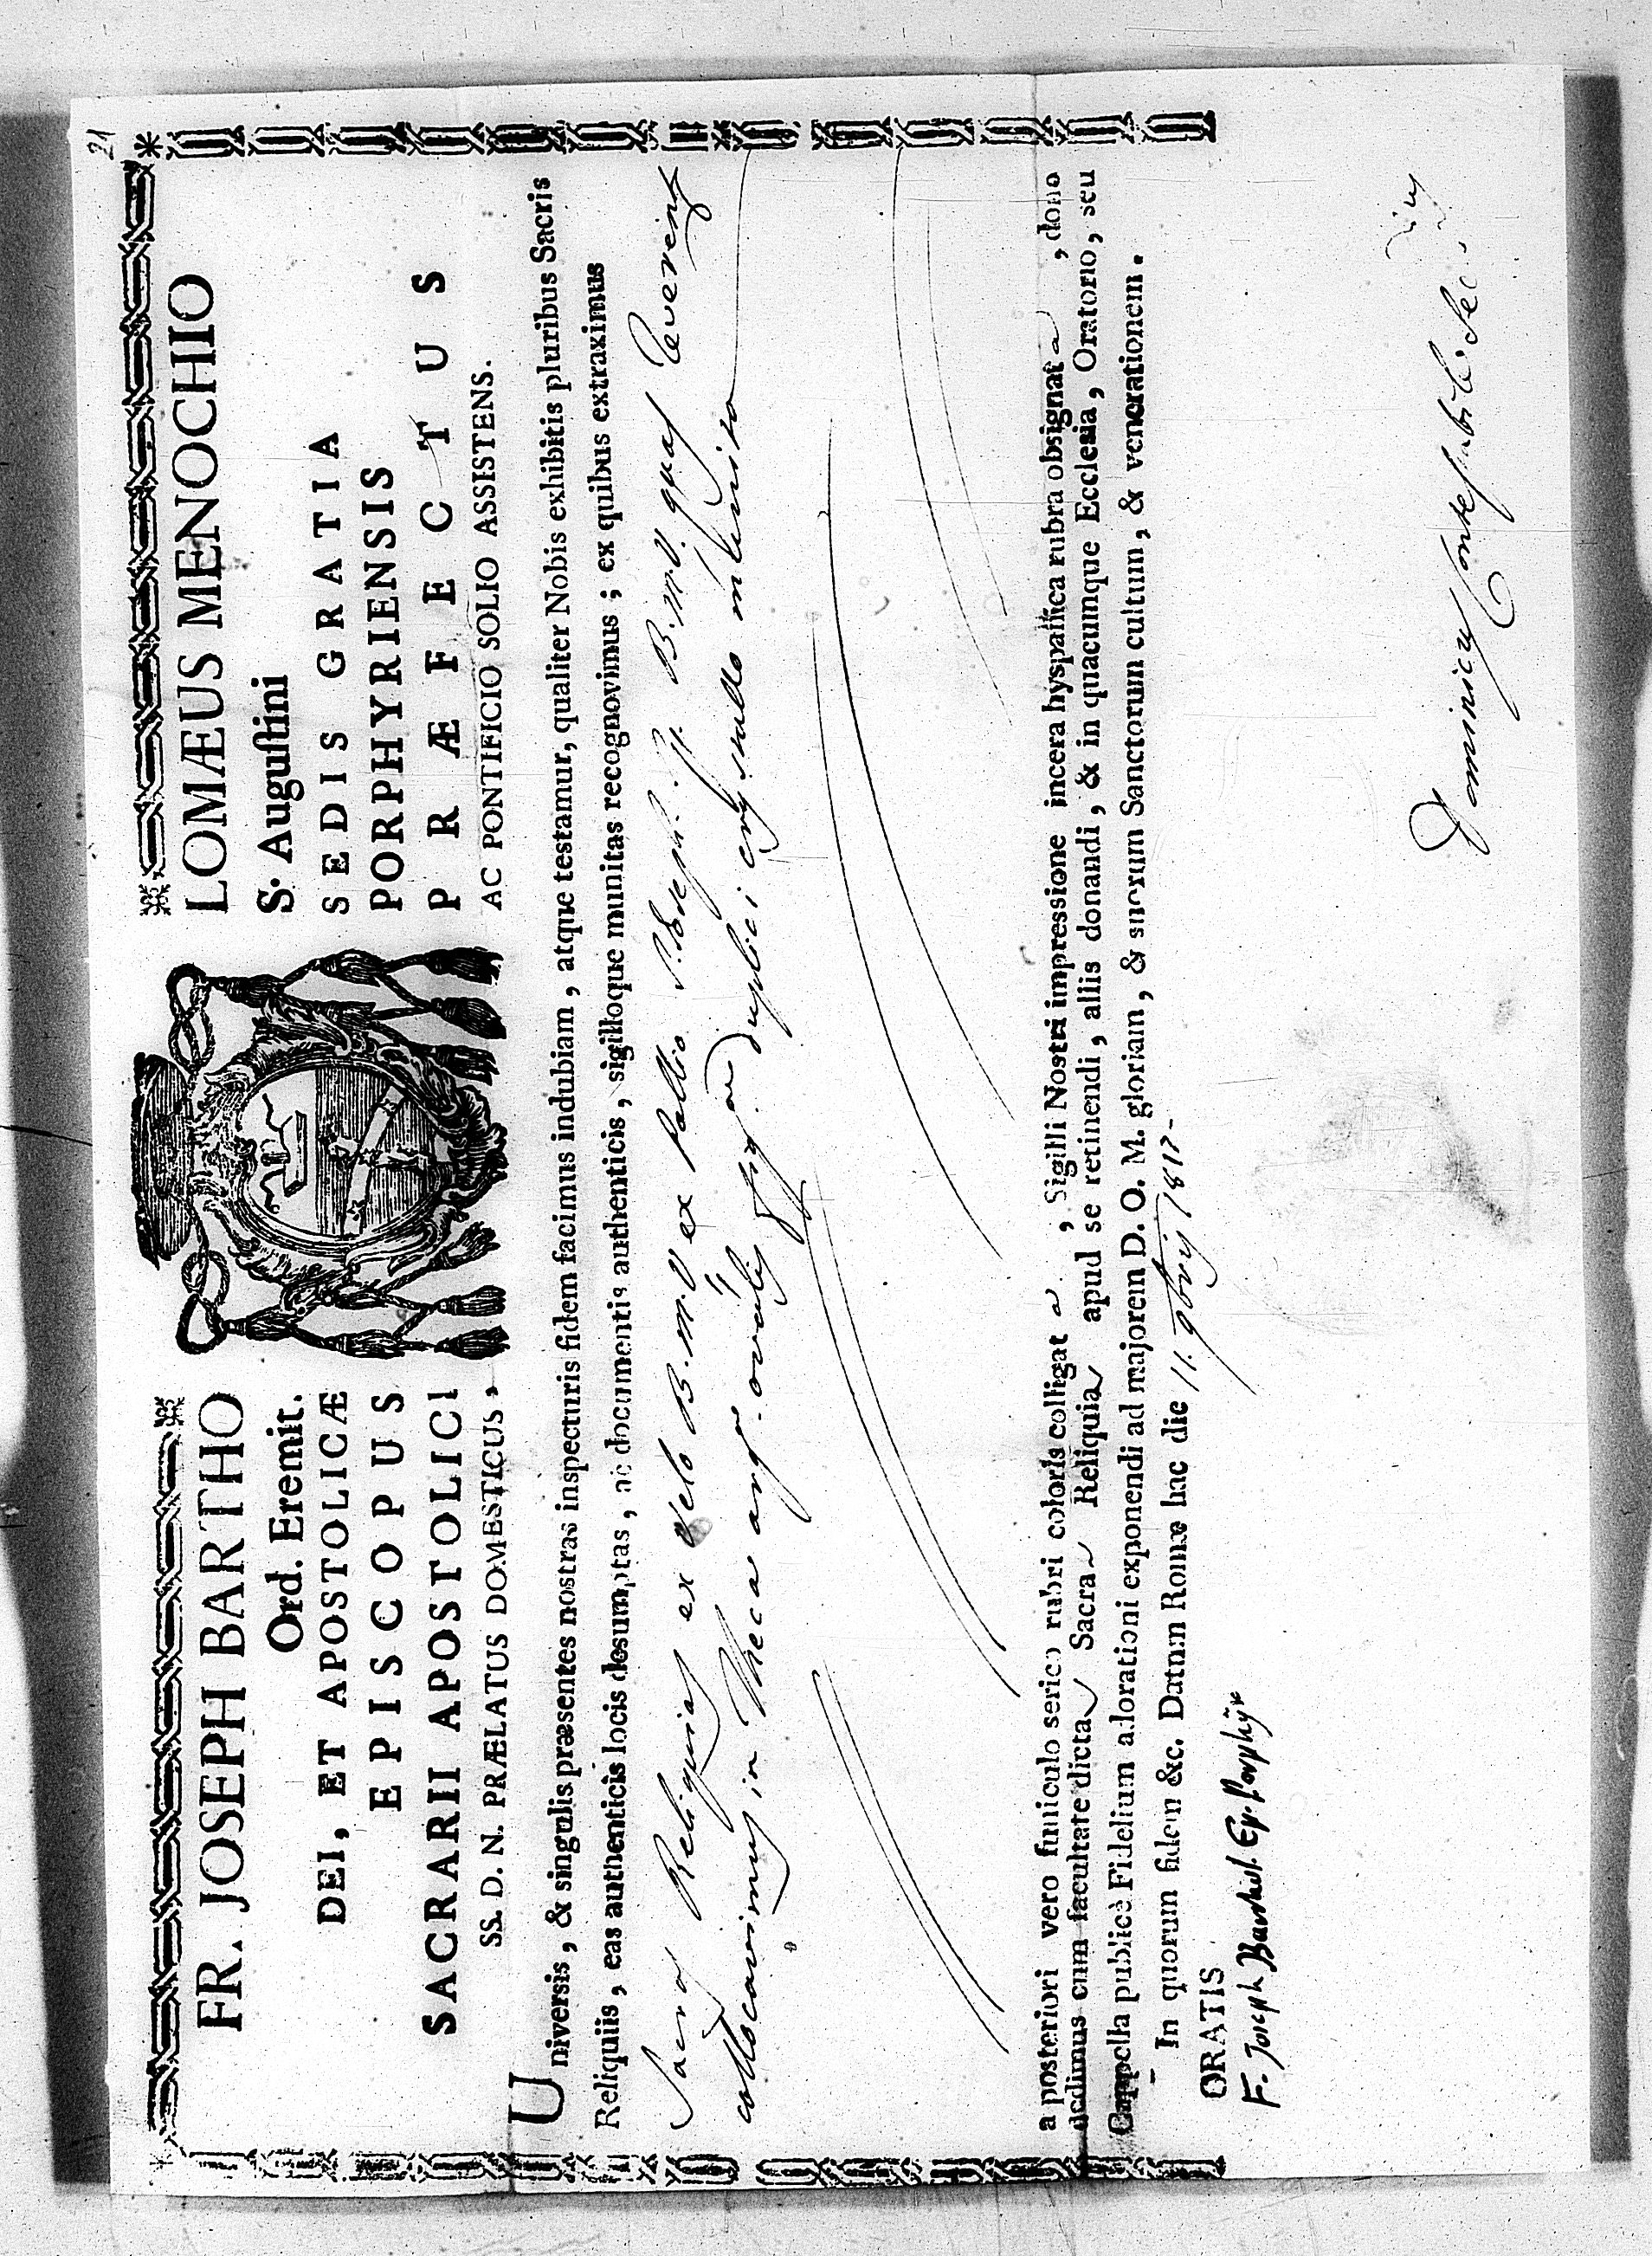 21
FR. JOSEPH BARTHO LOMÆUS MENOCHIO
Ord. Eremit. S. Auguſtini
DEI, ET APOSTOLICÆ SEDIS GRATIA
EPISCOPUS PORPHYRIENSIS
SACRARII APOSTOLICI PRÆFECTUS
SS. D. N. PRÆLATUS DOMESTICUS, AC PONTIFICIO SOLIO ASSISTENS.
Universis, & singulis præsentes nostras inspecturis fidem facimus indubiam, atque testamur, qualiter Nobis exhibitis pluribus Sacris
Reliquiis, eas authenticis locis desumptas, ac documentis authenticis, sigilloque munitas recognovimus; ex quibus extraximus
Sacras Reliquias ex Velo B. M. V. ex Pallio S. Joseph. B. M. V. quas reverent
collocavimus in theca arg. ovalis duplici crystallo munita
a posteriori vero funiculo serico rubri coloris colligat a, Sigilli Nostri impressione in cera hyspanica rubra obsignat a, dono
dedimus cum facultate dicta Sacra Reliquia apud se retinendi, aliis donandi, & in quacumque Ecclesia, Oratorio, seu
Cappella publicè Fidelium adorationi exponendi ad majorem D. O. M. gloriam, & suorum Sanctorum cultum, & venerationem.
In quorum fidem &c. Datum Romæ hac die 11. 9bris 1817
GRATIS
F. Joseph Barthol. Ep. Porphyr
Dominicus Contestabile Sec